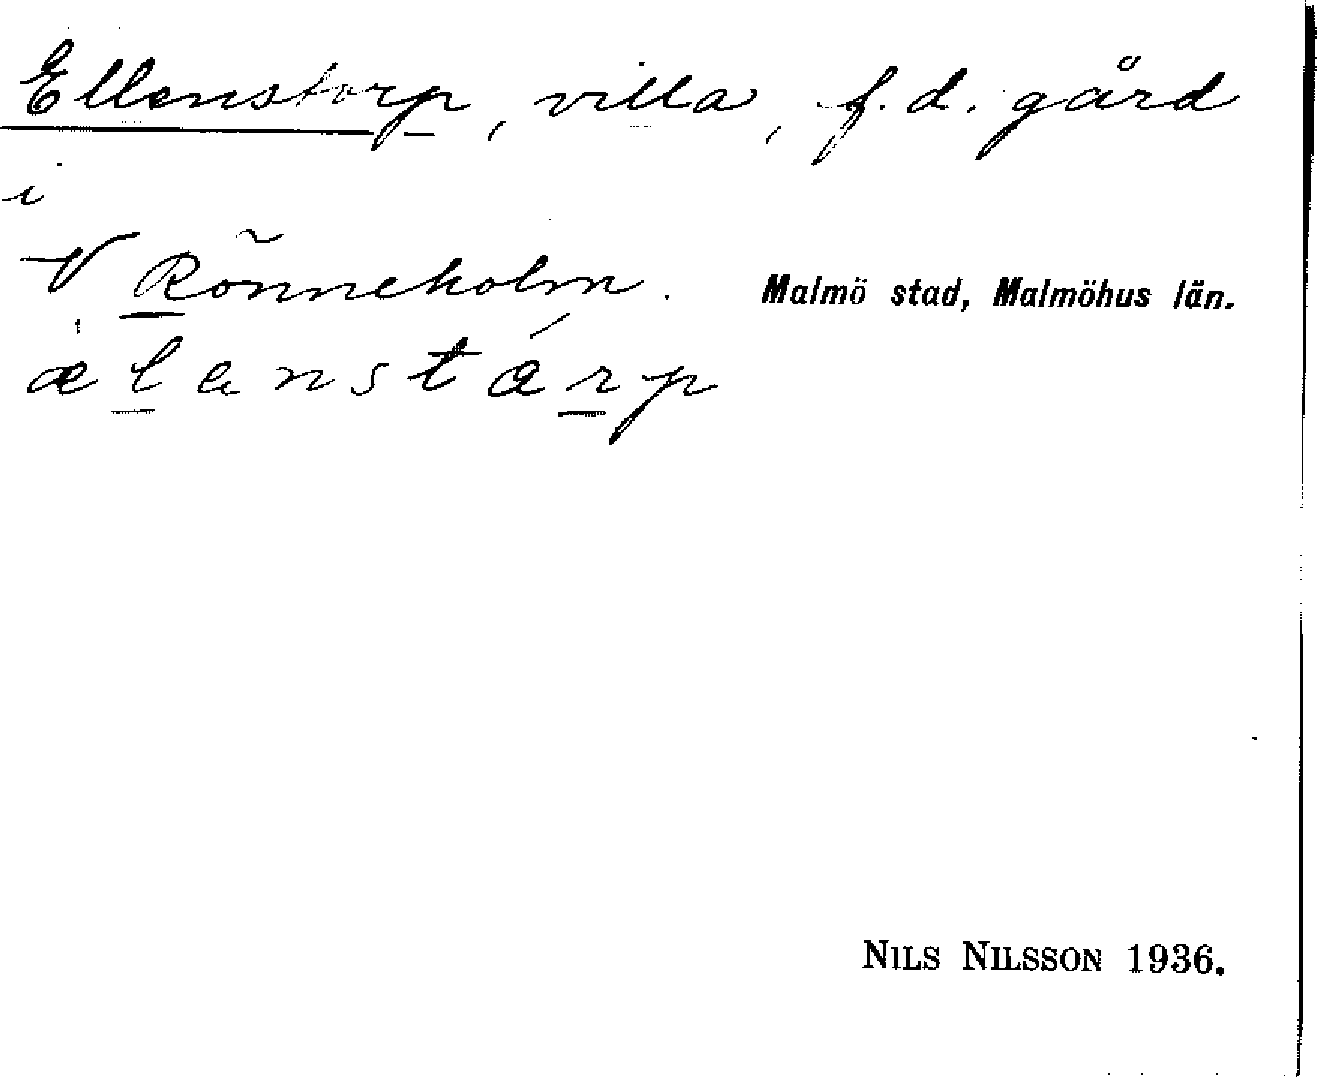 Ellenstorp, villa, f.d. gård
i
V Rönneholm. Malmö stad, Malmöhus län.
ælenstarp
NILS NILSSON 1936.